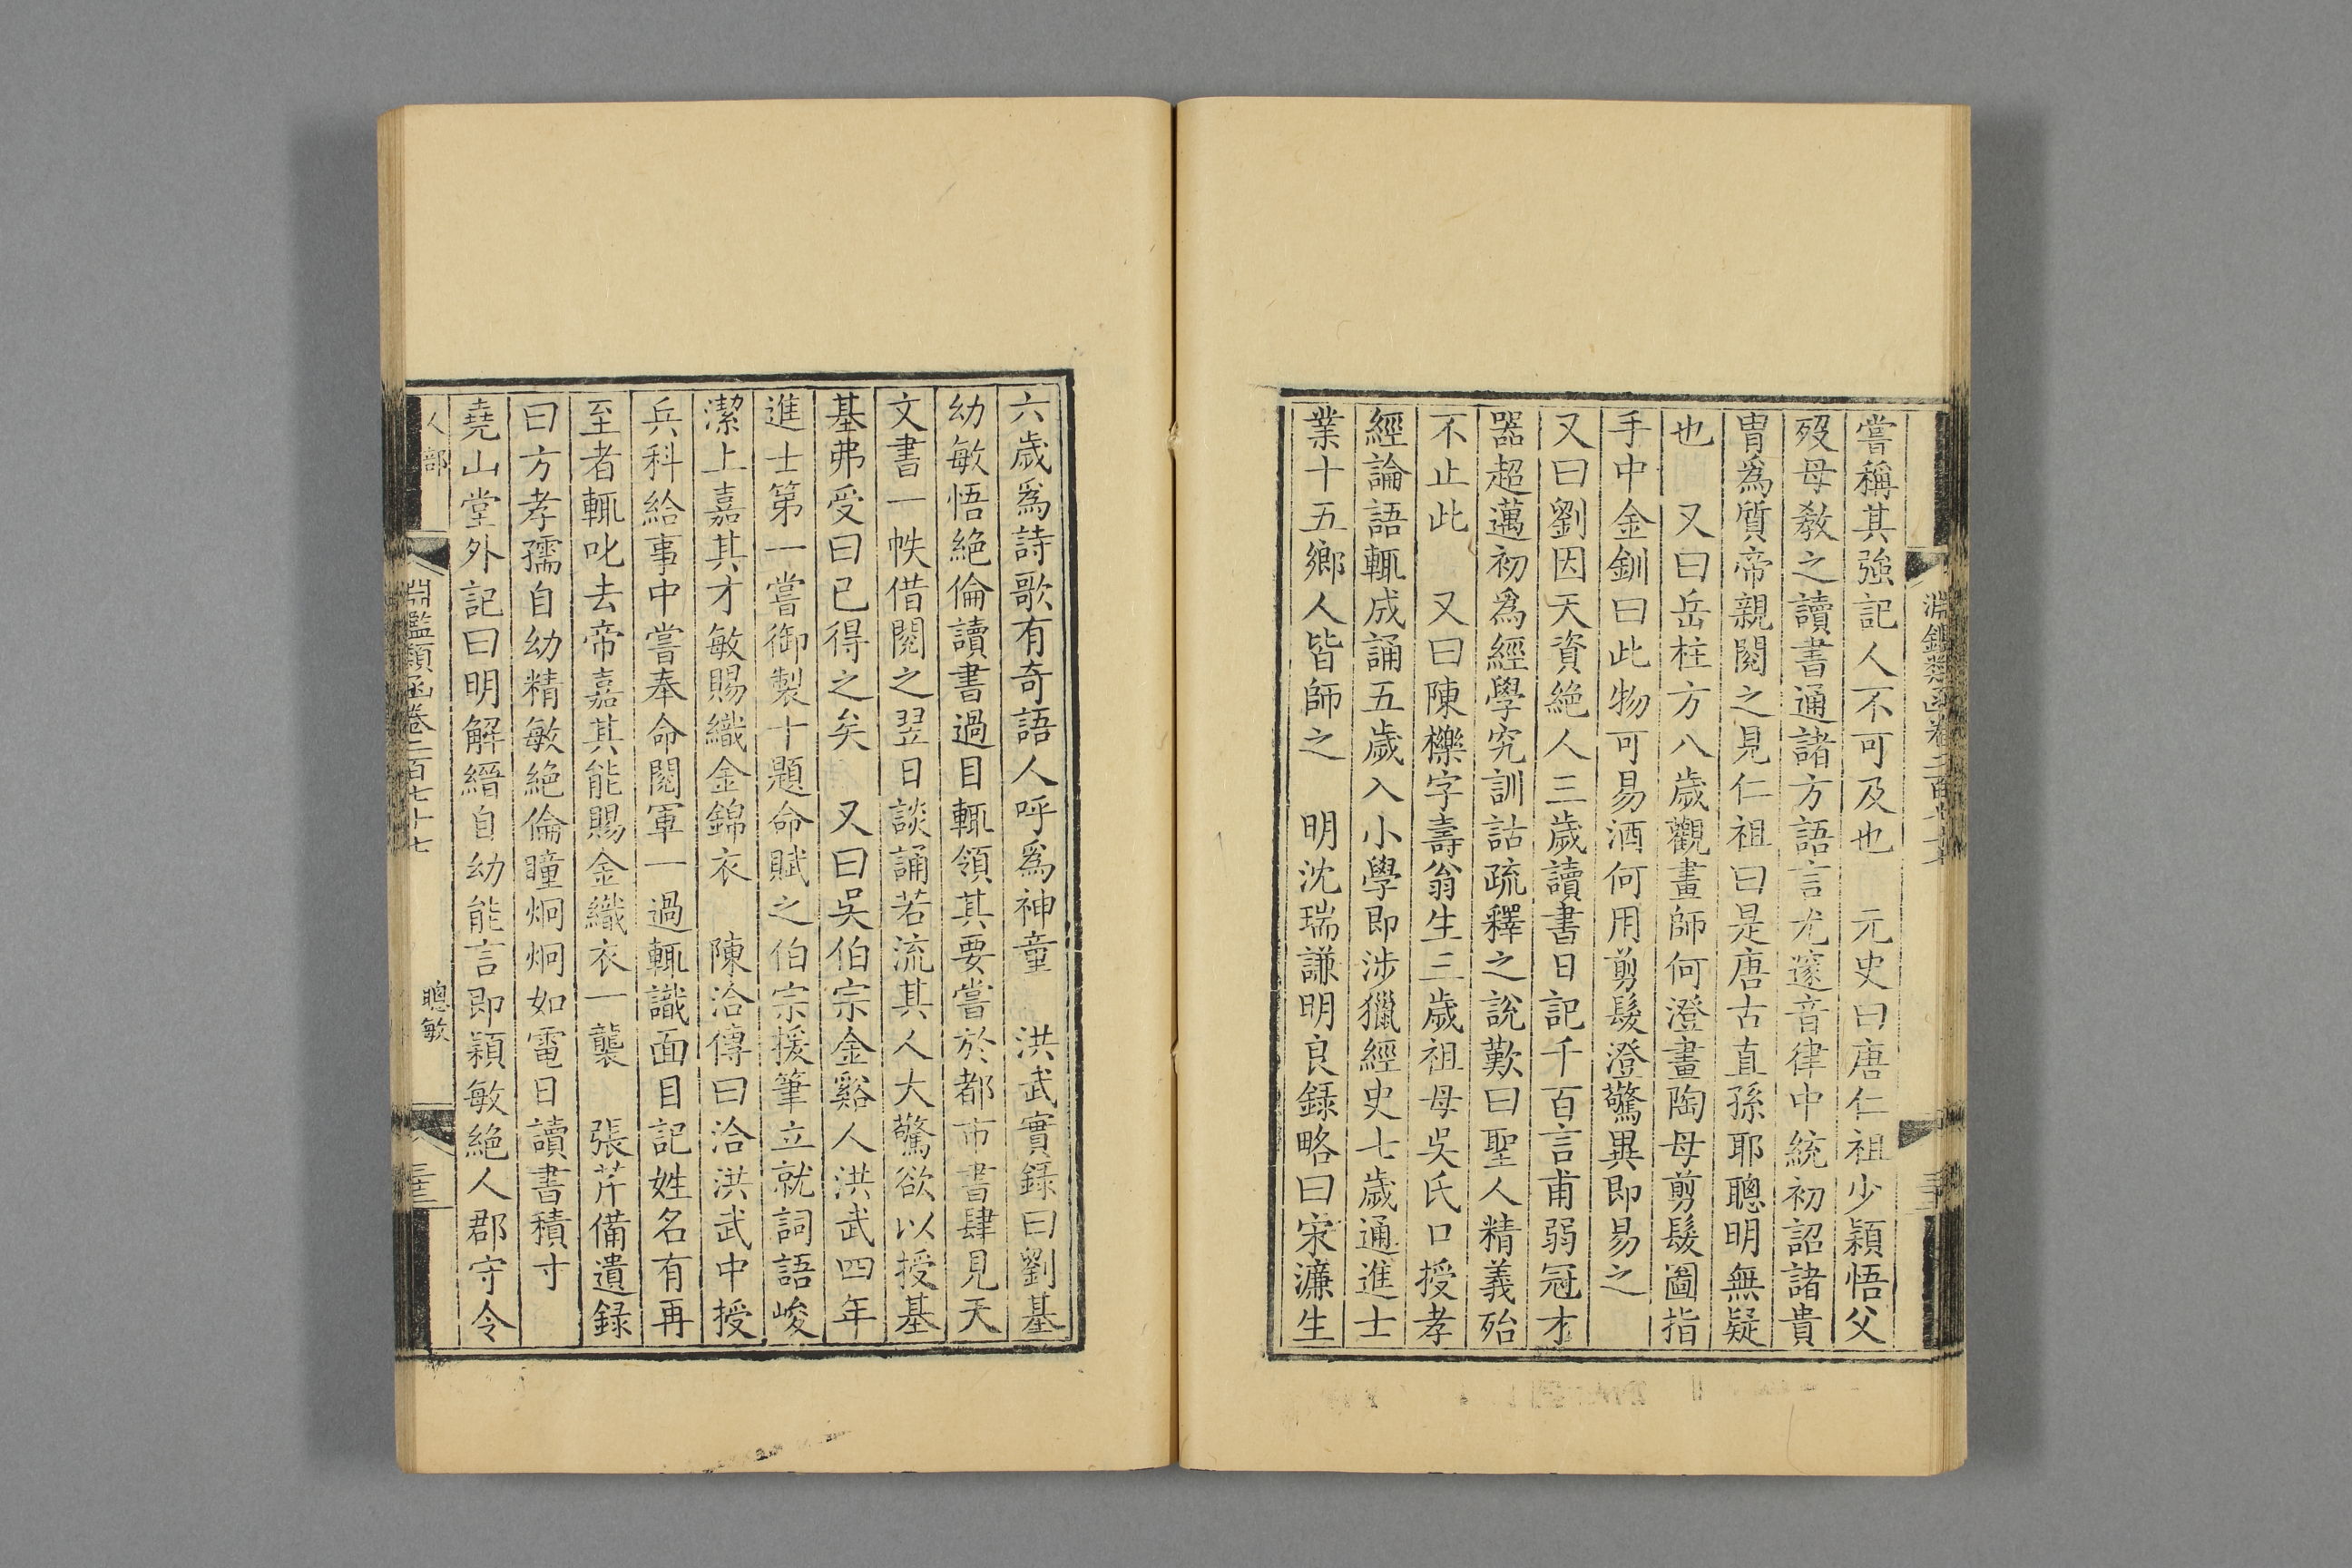 嘗稱其強記人不可及也　元史曰唐仁祖少穎悟父
歿母教之讀書通諸方語言尤邃音律中統初詔諸貴
胄為質帝親閱之見仁祖曰是唐古直孫耶聰明無疑
也　又曰岳柱方八歲觀畫師何澄畫陶母剪髮圖指
手中金釧曰此物可易酒何用剪髮澄驚異即易之
又曰劉因天資絕人三歲讀書日記千百言甫弱冠才
器超邁初為經學究訓詁疏釋之說歎曰聖人精義殆
不止此　又曰陳櫟字壽翁生三歲祖母吳氏口授孝
經論語輒成誦五歲入小學即涉獵經史七歲通進士
業十五鄉人皆師之　明沈瑞謙明良錄略曰宋濂生
六歲為詩歌有奇語人呼為神童　洪武實錄曰劉基
幼敏悟絕倫讀書過目輒領其要嘗於都市書肆見天
文書一帙借閱之翌日談誦若流其人大驚欲以授基
基弗受曰已得之矣　又曰吳伯宗金谿人洪武四年
進士第一嘗御製十題命賦之伯宗援筆立就詞語峻
潔上嘉其才敏賜織金錦衣　陳洽傳曰洽洪武中授
兵科給事中嘗奉命閱軍一過輒識面目記姓名有再
至者輒叱去帝嘉其能賜金織衣一襲　張芹備遺錄
曰方孝孺自幼精敏絕倫瞳炯炯如電日讀書積寸
堯山堂外記曰明解縉自幼能言即穎敏絕人郡守令
人部
淵鑑類函卷二百七十七
聰敏